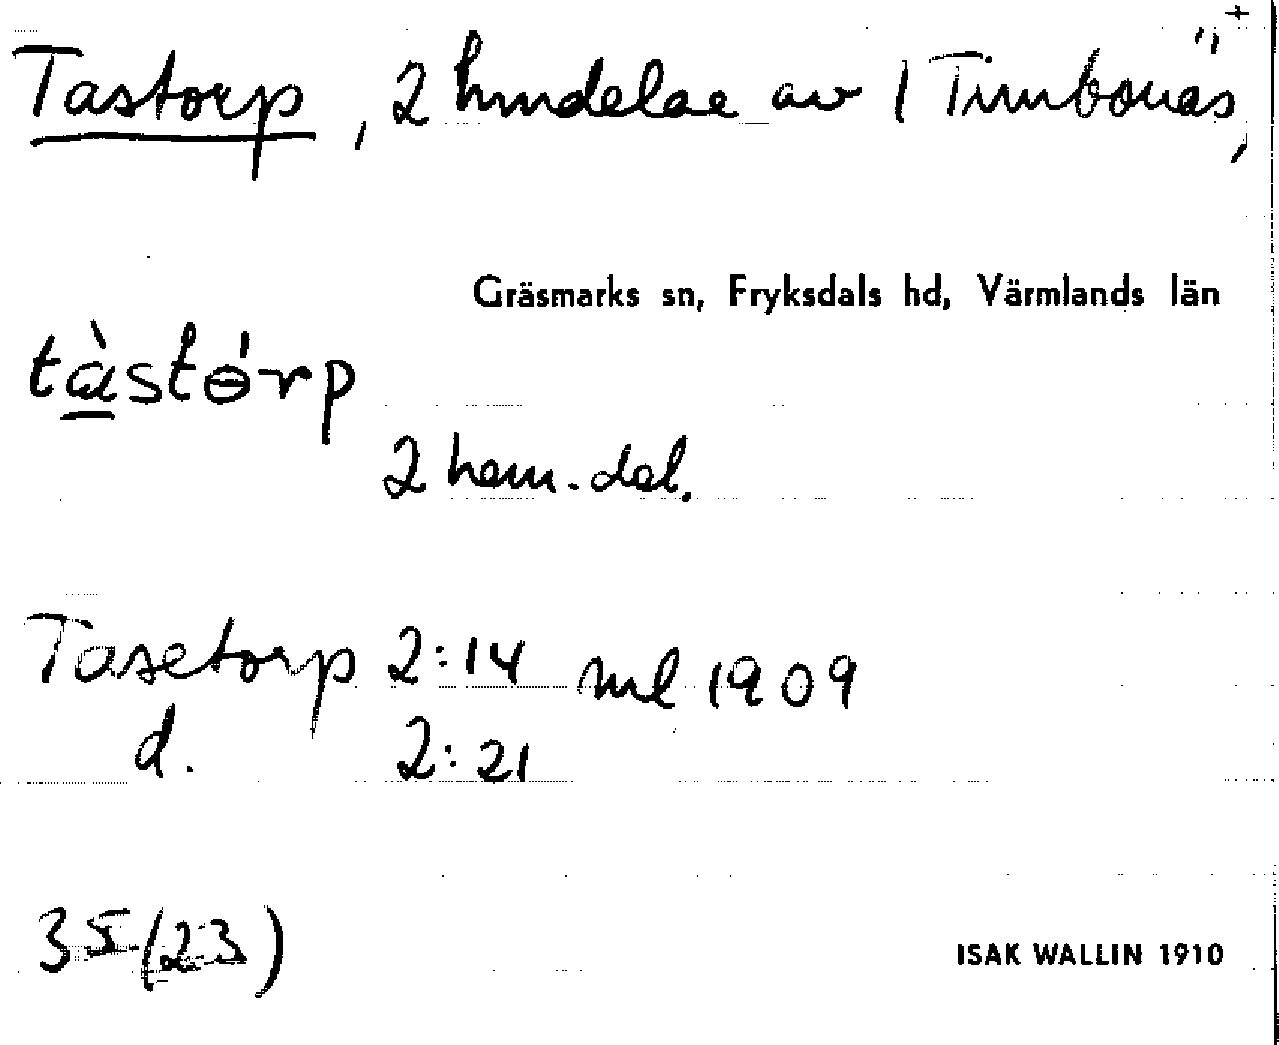 +
Tastorp, 2 hmdelar av 1 Timbonäs,
Gräsmarks sn, Fryksdals hd, Värmlands län
tàstɵ́rp
2 hem.del.
Tasetorp 2:14 ml 1909
d. 2:21
35 (23)
ISAK WALLIN 1910